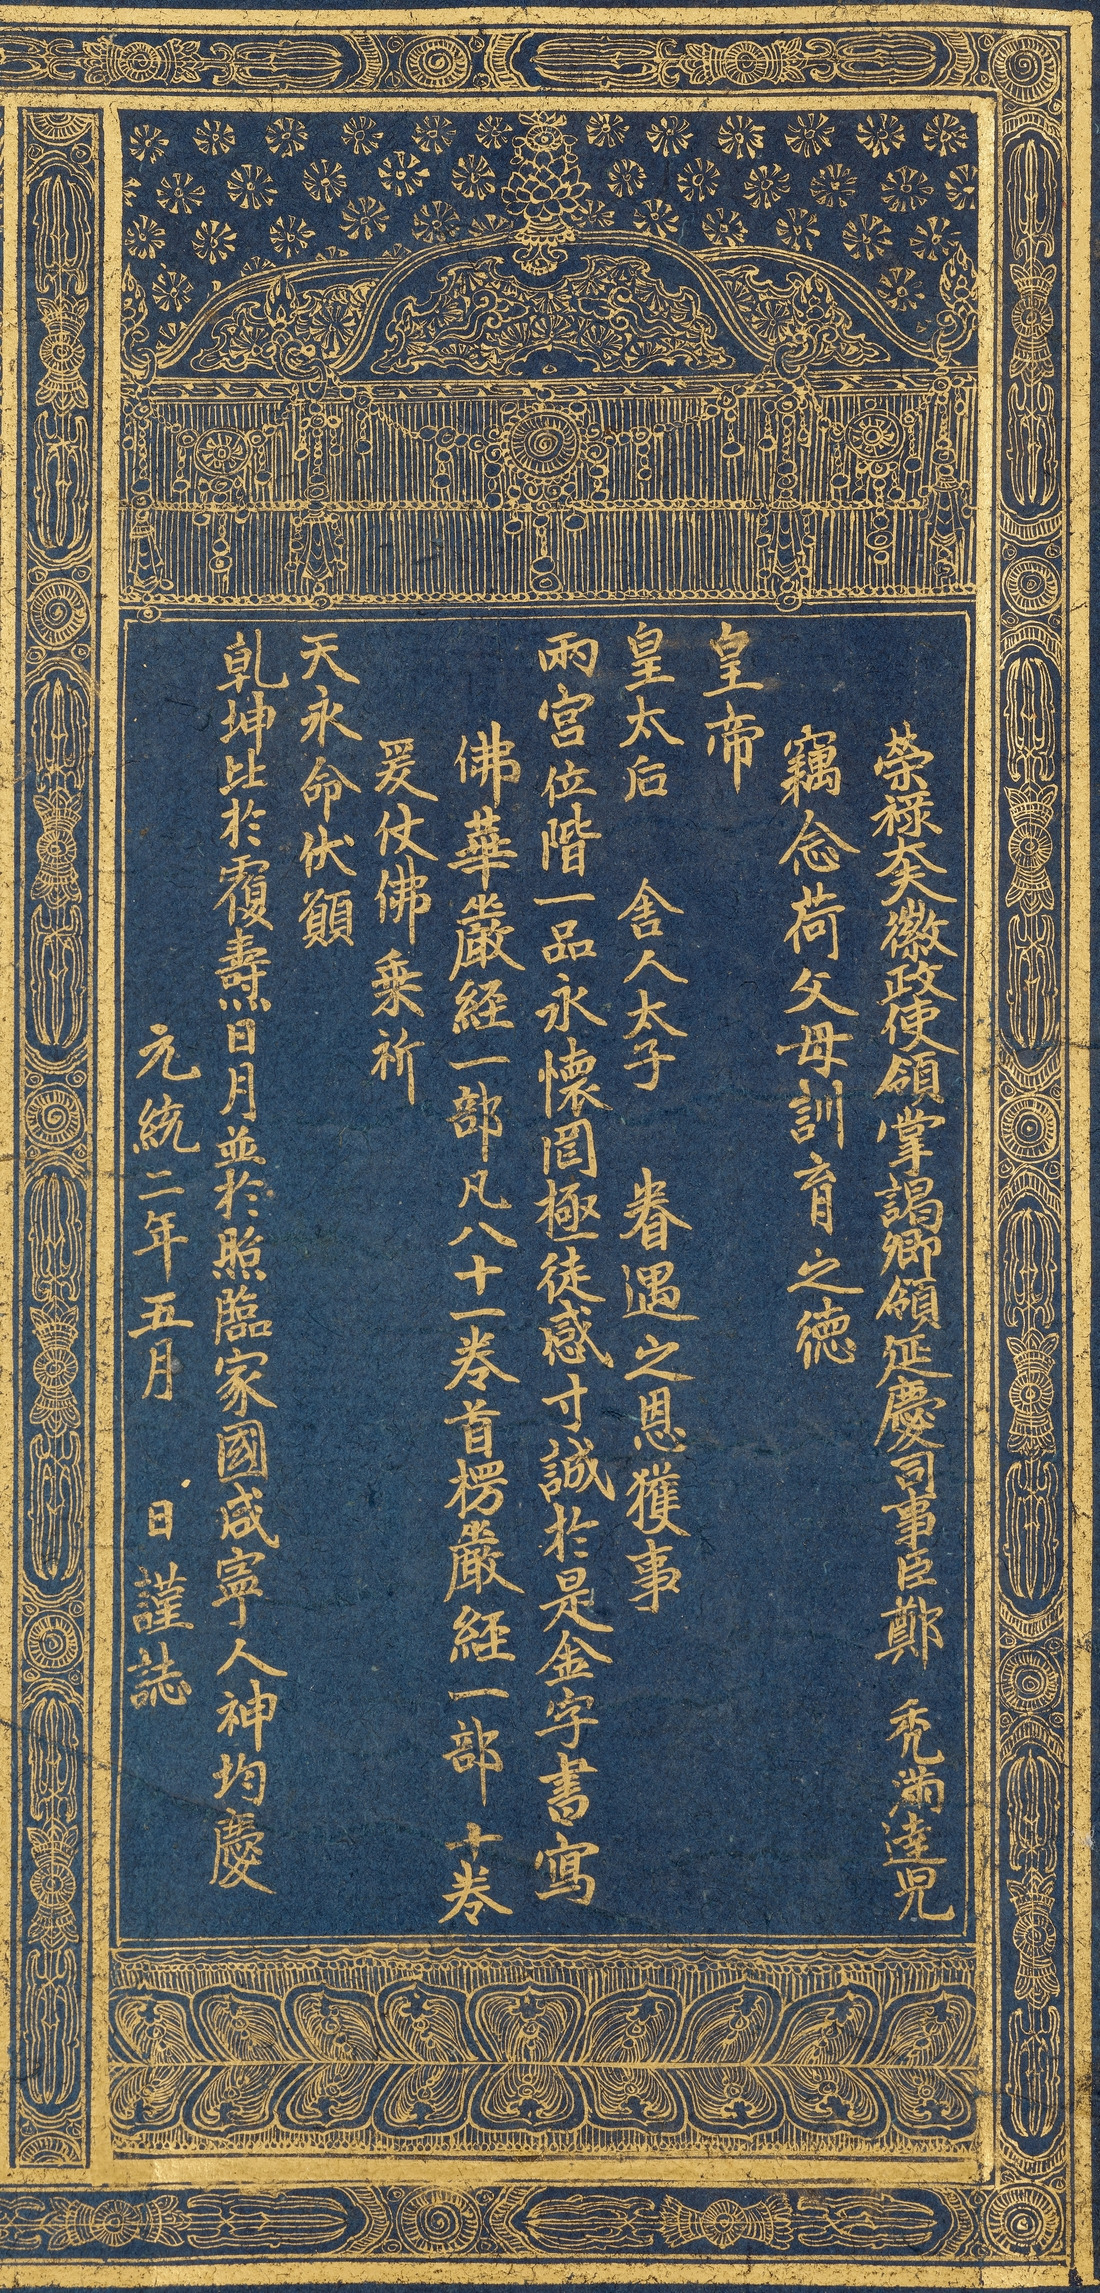 榮禄大夫徽政使領掌謁卿領延慶司事臣鄭　禿滿達兒
竊念荷父母訓育之德
皇帝
皇太后　舍人太子　眷遇之恩獲事
兩宮位階一品永懷罔極徒感寸誠於是金字書寫
佛華嚴経一部凡八十一卷首楞嚴経一部十卷
爰仗佛乗祈
天永命伏願
乹坤比於覆燾日月並於照臨家國咸寧人神均慶
元統二年五月　日謹誌